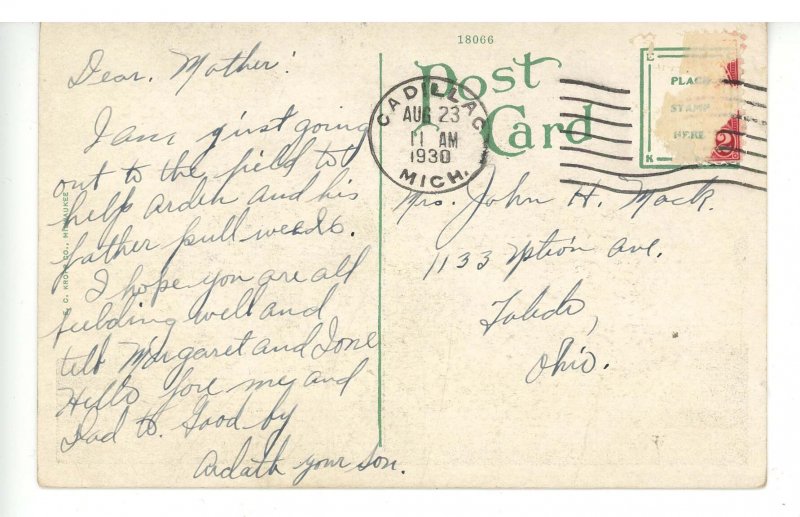 18066
Post
Card
CADILLAC
AUG 23
11 AM
1930
MICH.
PLACE
STAMP
HERE
2
K
Dear, Mother!
I am just going
out to the field to
help Arden and his
father pull weeds.
I hope you are all
feelding well and
tell Margaret and Ione
Hello fore me and
Dad to. Good by
Ardath your Son.
Mrs. John H. Mack.
1133 Yption Ave.
Toledo,
Ohio.
C. KROPP CO., MILWAUKEE